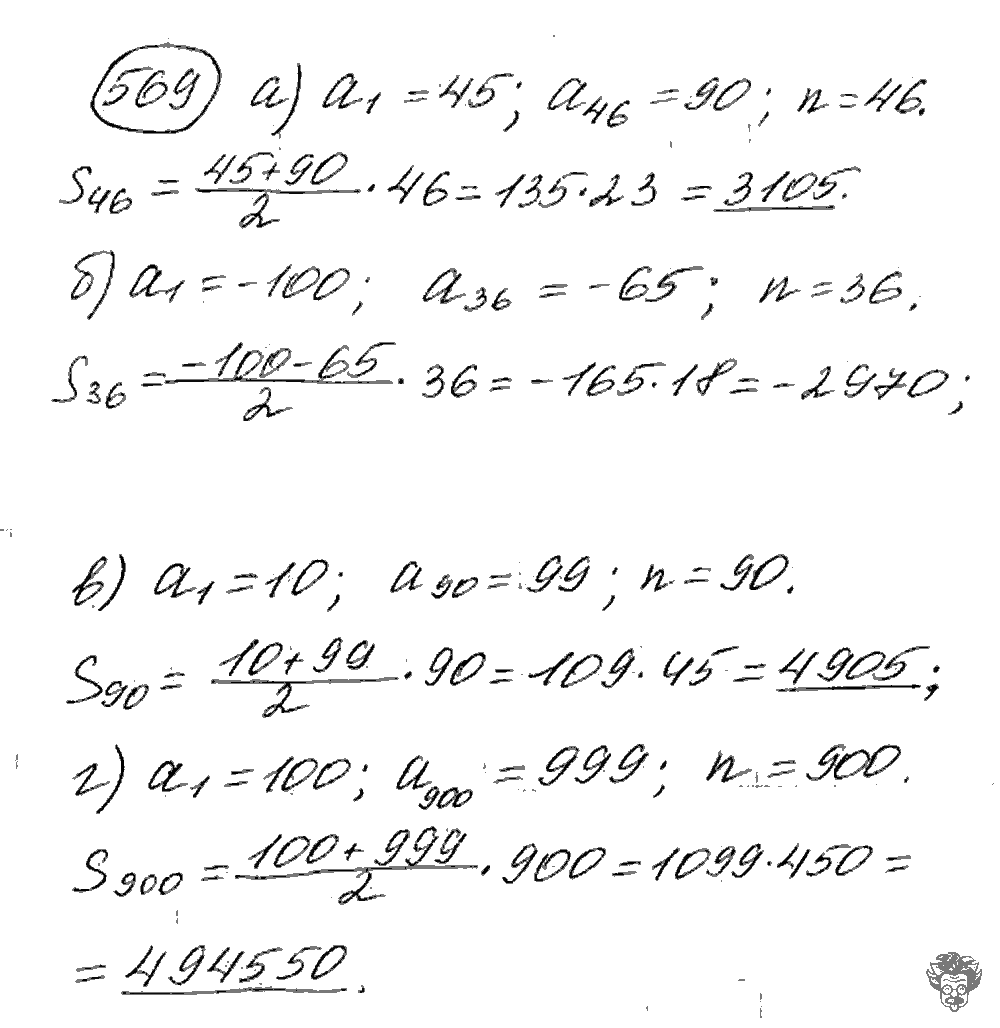 569 а) a₁ = 45; a₄₆ = 90; n = 46.
S₄₆ = (45+90)/2 · 46 = 135 · 23 = 3105.
б) a₁ = -100; a₃₆ = -65; n = 36.
S₃₆ = (-100-65)/2 · 36 = -165 · 18 = -2970;
в) a₁ = 10; a₉₀ = 99; n = 90.
S₉₀ = (10+99)/2 · 90 = 109 · 45 = 4905;
г) a₁ = 100; a₉₀₀ = 999; n = 900.
S₉₀₀ = (100+999)/2 · 900 = 1099 · 450 =
= 494550.